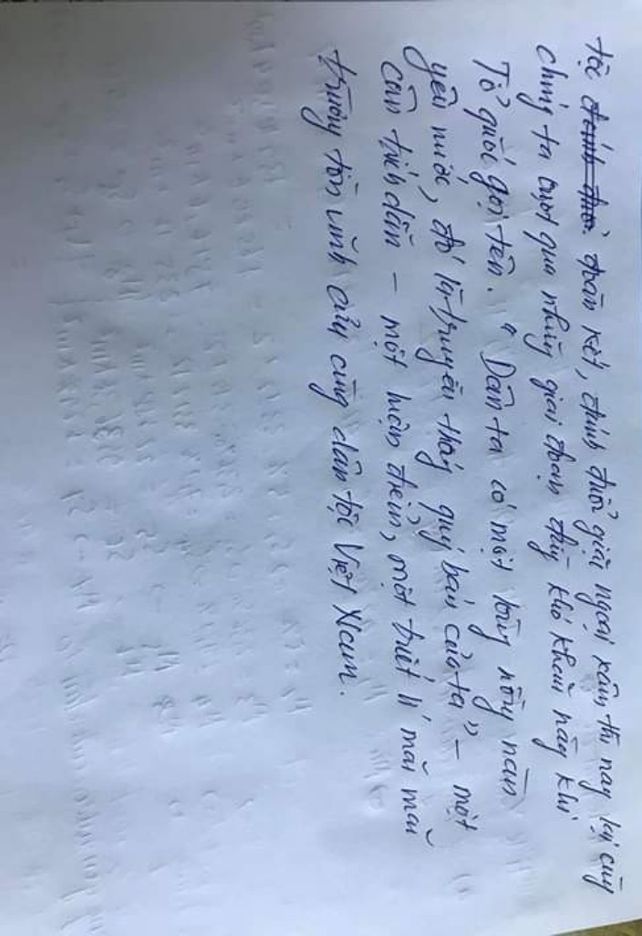 tộc đoàn kết, đánh đuổi giặc ngoại xâm thì nay lại cùng
chúng ta vượt qua những giai đoạn đầy khó khăn này khi
Tổ quốc gọi tên. "Dân ta có một lòng nồng nàn
yêu nước, đó là truyền thống quý báu của ta" – một
căn tính dân – một luận điểm, một triết lí mãi mãi
trường tồn vĩnh cửu cùng dân tộc Việt Nam.